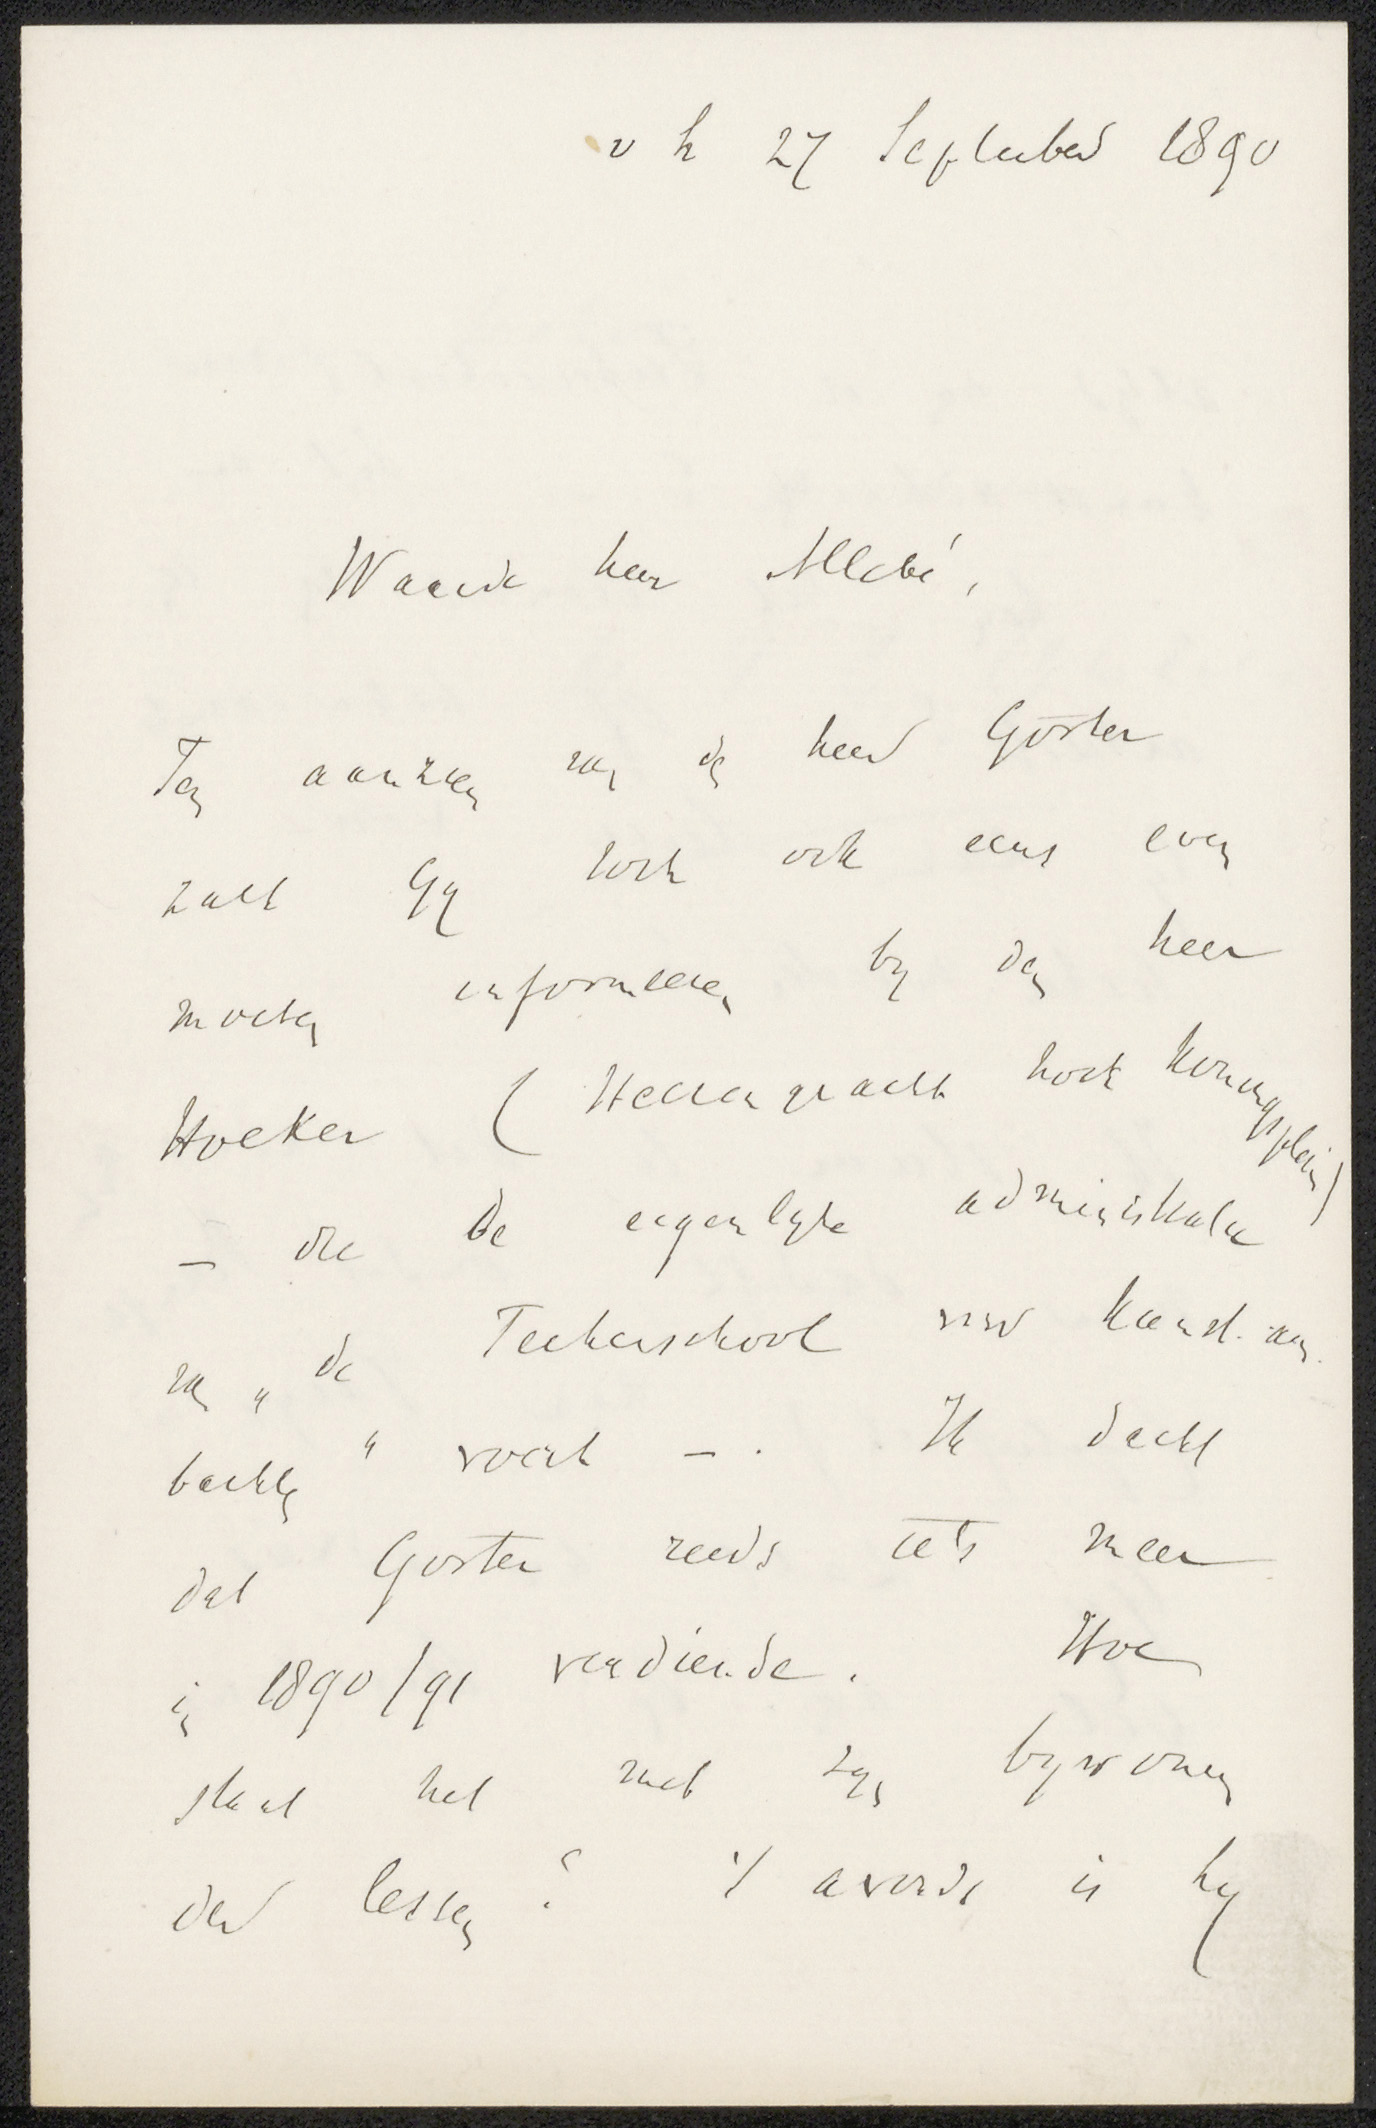 v h 27 September 1890
Waarde heer Allebé,
Ten aanzien van den heer Gorter
zult Gy toch ook eens even
moeten informeeren by den heer
Hoeker (Heerengracht hoek Koningsplein)
– die de eigenlyke administratie
van „de Teekenschool voor kunst-am-
bachten" voert –. Ik dacht
dat Gorter reeds iets meer
in 1890/91 verdiende. Hoe
staat het met zyn bywonen
der lessen? 's avonds is hy